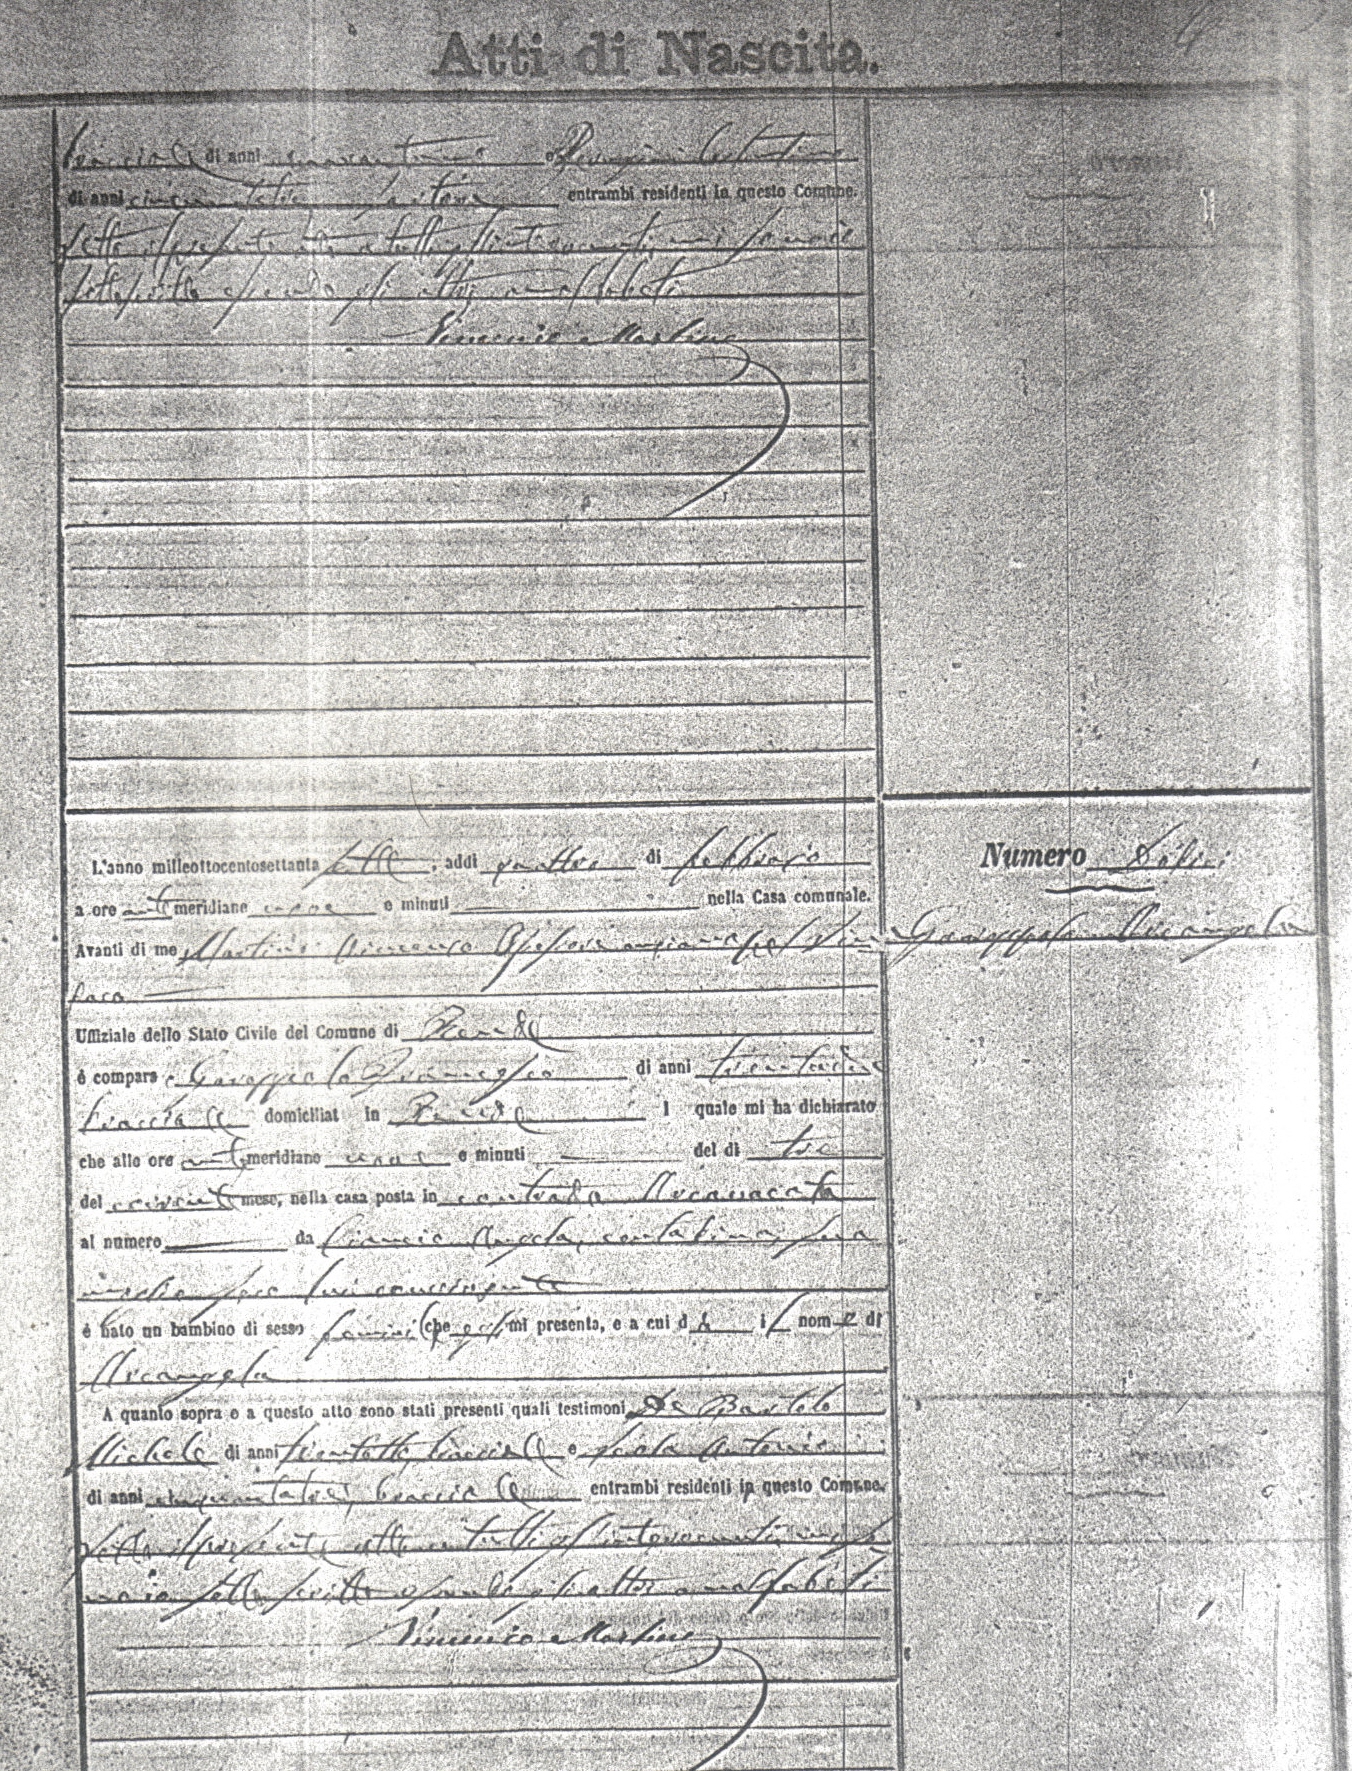 Atti di Nascita.
bracciale di anni quarantuno e Perugini Costantino
di anni cinquantatre, entrambi residenti in questo Comune.
Letto il presente atto a tutti gl'intervenuti, mi sono io
sottoscritto essendo gli altri analfabeti
Vincenzo Martino
Numero Dodici
Garoppolo Arcangela
L'anno milleottocentosettanta sette, addì quattro di febbraio
a ore anti meridiane nove e minuti nella Casa comunale.
Avanti di me Martino Vincenzo Assessore anziano pel Sin
daco
Uffiziale dello Stato Civile del Comune di Rende
è comparso Garoppolo Francesco di anni
bracciale domiciliat in Rende l quale mi ha dichiarato
che alle ore ant meridiane nove e minuti del dì tre
del corrente mese, nella casa posta in contrada Arcavacata
al numero da Angela, contadina, sua
moglie seco lui convivente
è nato un bambino di sesso femmini che egli mi presenta, e a cui dà il nome di
Arcangela
A quanto sopra e a questo atto sono stati presenti quali testimoni De Bartolo
Michele di anni trentotto, bracciale e Antonio
di anni cinquantatre, bracciale entrambi residenti in questo Comune.
Letto il presente atto a tutti gl'intervenuti, mi so
no io sottoscritto essendo gli altri analfabeti
Vincenzo Martino